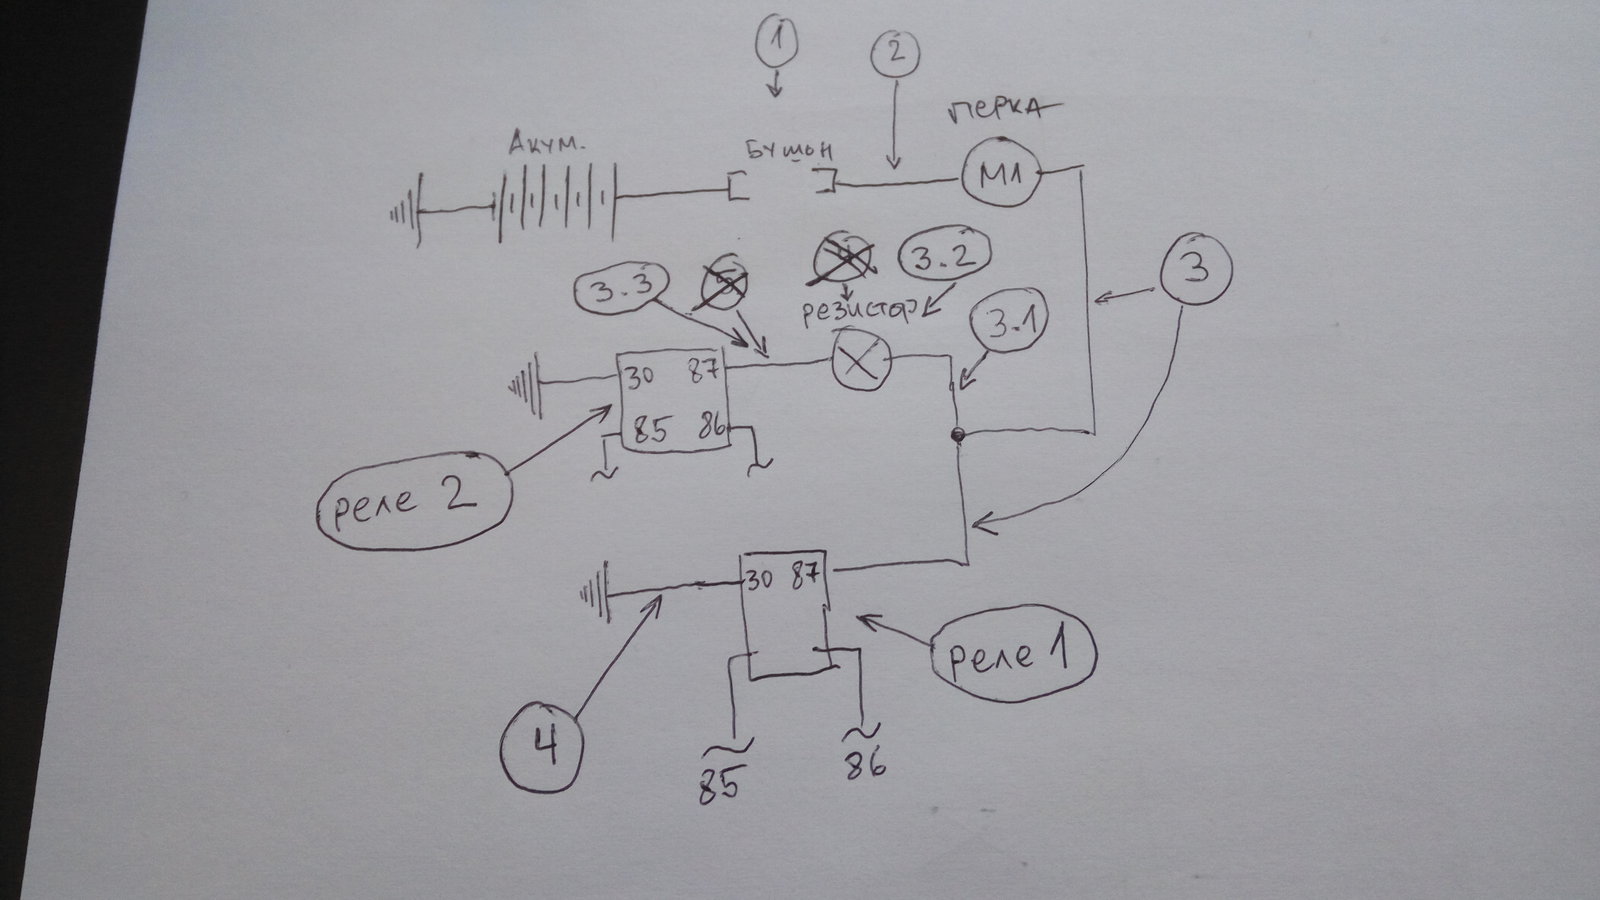 1
2
ПЕРКА
Акум.
Бушон
M1
3
3.3
5
4
3.2
резистор
3.1
30 87
85 86
реле 2
30 87
реле 1
4
85
86